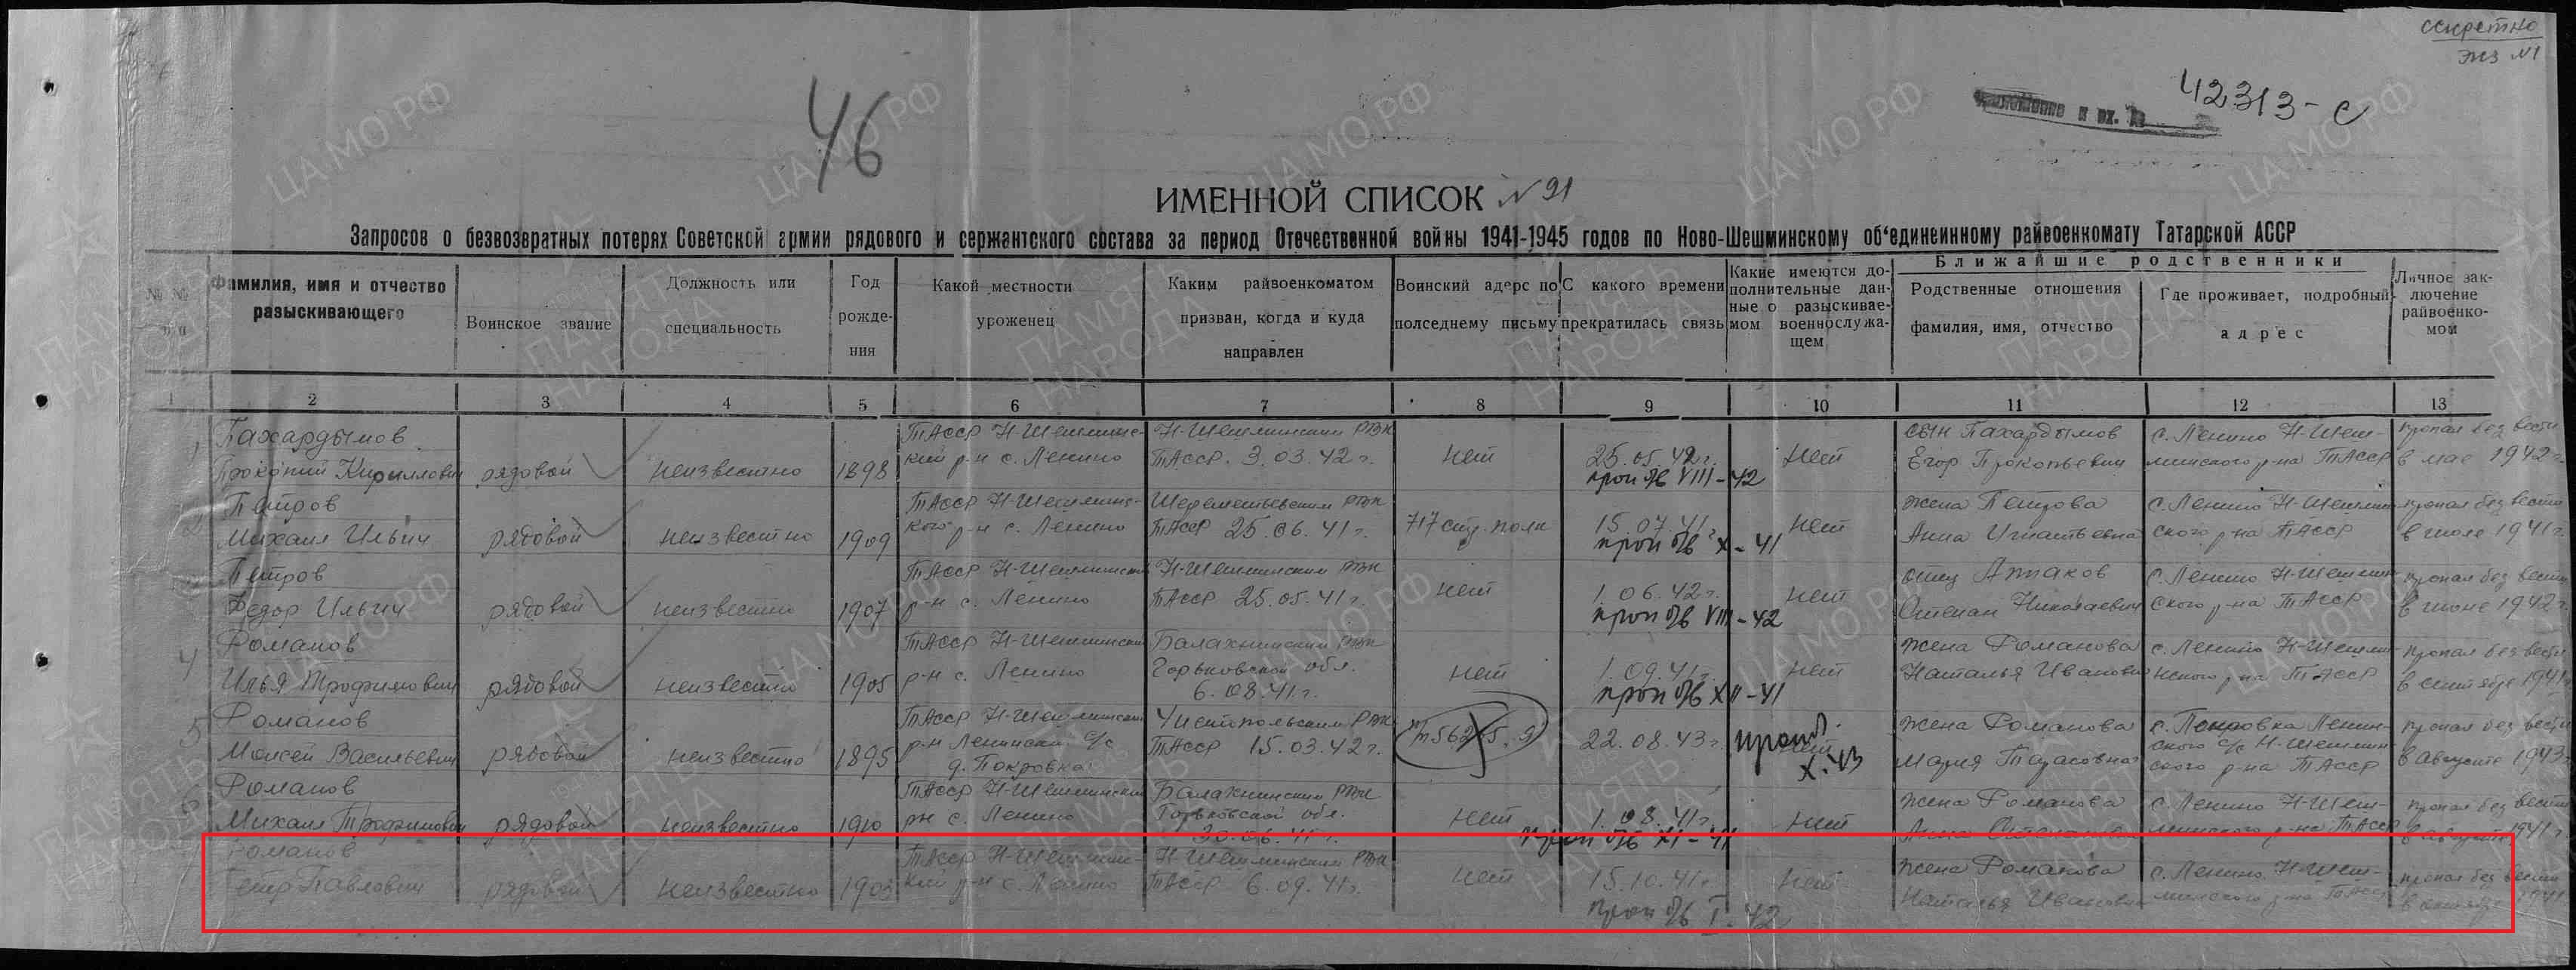 секретно
экз №1
46
42313-с
ИМЕННОЙ СПИСОК № 91
Запросов о безвозвратных потерях Советской армии рядового и сержантского состава за период Отечественной войны 1941-1945 годов по Ново-Шешминскому об‘единенному райвоенкомату Татарской АССР
№ № п п
Фамилия, имя и отчество разыскивающего
Воинское звание
Должность или специальность
Год рождения
Какой местности уроженец
Каким райвоенкоматом призван, когда и куда направлен
Воинский адерс по полседнему письму
С какого времени прекратилась связь
Какие имеются дополнительные данные о разыскиваемом военнослужащем
Ближайшие родственники
Родственные отношения фамилия, имя, отчество
Где проживает, подробный адрес
Личное заключение райвоенкомом
1 2 3 4 5 6 7 8 9 10 11 12 13
1 Пахардымов Прокопий Кириллович рядовой неизвестно 1898 ТАССР Н-Шешминский р-н с. Ленино Н-Шешминским РВК ТАССР. 3.03.42 г. нет 25.05.42 г. проп б/в VIII-42 нет сын Пахардымов Егор Прокопьевич с. Ленино Н-Шешминского р-на ТАССР пропал без вести в мае 1942 г.
2 Петров Михаил Ильич рядовой неизвестно 1909 ТАССР Н-Шешминского р-н с. Ленино Шереметьевским РВК ТАССР 25.06.41 г. 717 стр. полк 15.07.41 г. проп б/в X-41 нет жена Петрова Анна Игнатьевна с. Ленино Н-Шешминского р-на ТАССР пропал без вести в июле 1941 г.
3 Петров Федор Ильич рядовой неизвестно 1907 ТАССР Н-Шешминский р-н с. Ленино Н-Шешминским РВК ТАССР 25.05.41 г. нет 1.06.42 г. проп б/в VIII-42 нет отец Степан Николаевич с. Ленино Н-Шешминского р-на ТАССР пропал без вести в июне 1942 г.
4 Романов Илья Трофимович рядовой неизвестно 1905 ТАССР Н-Шешминский р-н с. Ленино Балахнинским РВК Горьковской обл. 6.08.41 г. нет 1.09.41 г. проп б/в XII-41 нет жена Романова Наталья Ивановна с. Ленино Н-Шешминского р-на ТАССР пропал без вести в сентябре 1941 г.
5 Романов Моисей Васильевич рядовой неизвестно 1895 ТАССР Н-Шешминский р-н Ленинский с/с д. Покровка Чистопольским РВК ТАССР 15.03.42 г. 22.08.43 г. нет X.43 жена Романова Мария Тарасовна с. Покровка Ленинского с/с Н-Шешминского р-на ТАССР пропал без вести в августе 1943 г.
6 Романов Михаил Трофимович рядовой неизвестно 1910 ТАССР Н-Шешминский р-н с. Ленино Балахнинским РВК Горьковской обл. 30.06.41 г. нет 1.08.41 г. проп б/в XI-41 нет жена Романова Анна с. Ленино Н-Шешминского р-на ТАССР пропал без вести в августе 1941 г.
Романов Петр Павлович рядовой неизвестно 1903 ТАССР Н-Шешминский р-н с. Ленино Н-Шешминским РВК ТАССР 6.09.41 г. нет 15.10.41 г. проп б/в I-42 нет жена Романова Наталья Ивановна с. Ленино Н-Шешминского р-на ТАССР пропал без вести в октябре 1941
ЦАМО РФ
ПАМЯТЬ НАРОДА